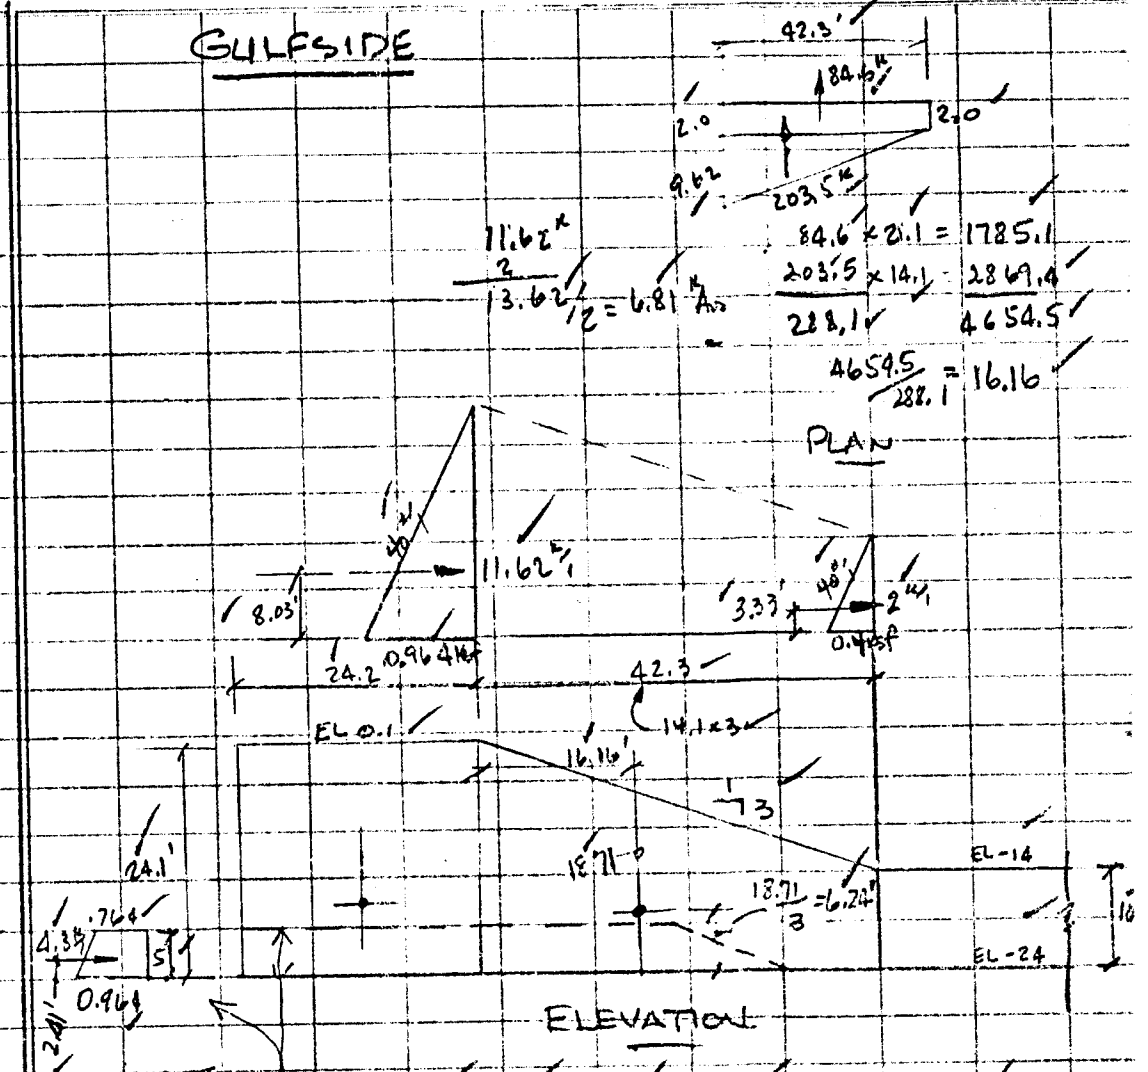 GULFSIDE
42.3'
84.6 K
2.0
2.0
9.62
203.5 K
11.62 K
2
13.62/2 = 6.81 K
84.6 x 21.1 = 1785.1
203.5 x 14.1 = 2869.4
288.1 4654.5
4654.5/288.1 = 16.16
PLAN
11.62 K/1
8.03'
3.33'
2 K/1
24.2
0.964
0.4 KSF
42.3
14.1 x 3
EL 0.1
16.16'
1
3
24.1'
18.71
18.71/3 = 6.24'
EL -14
10'
EL -24
.764
4.3
5
0.964
2.41'
ELEVATION